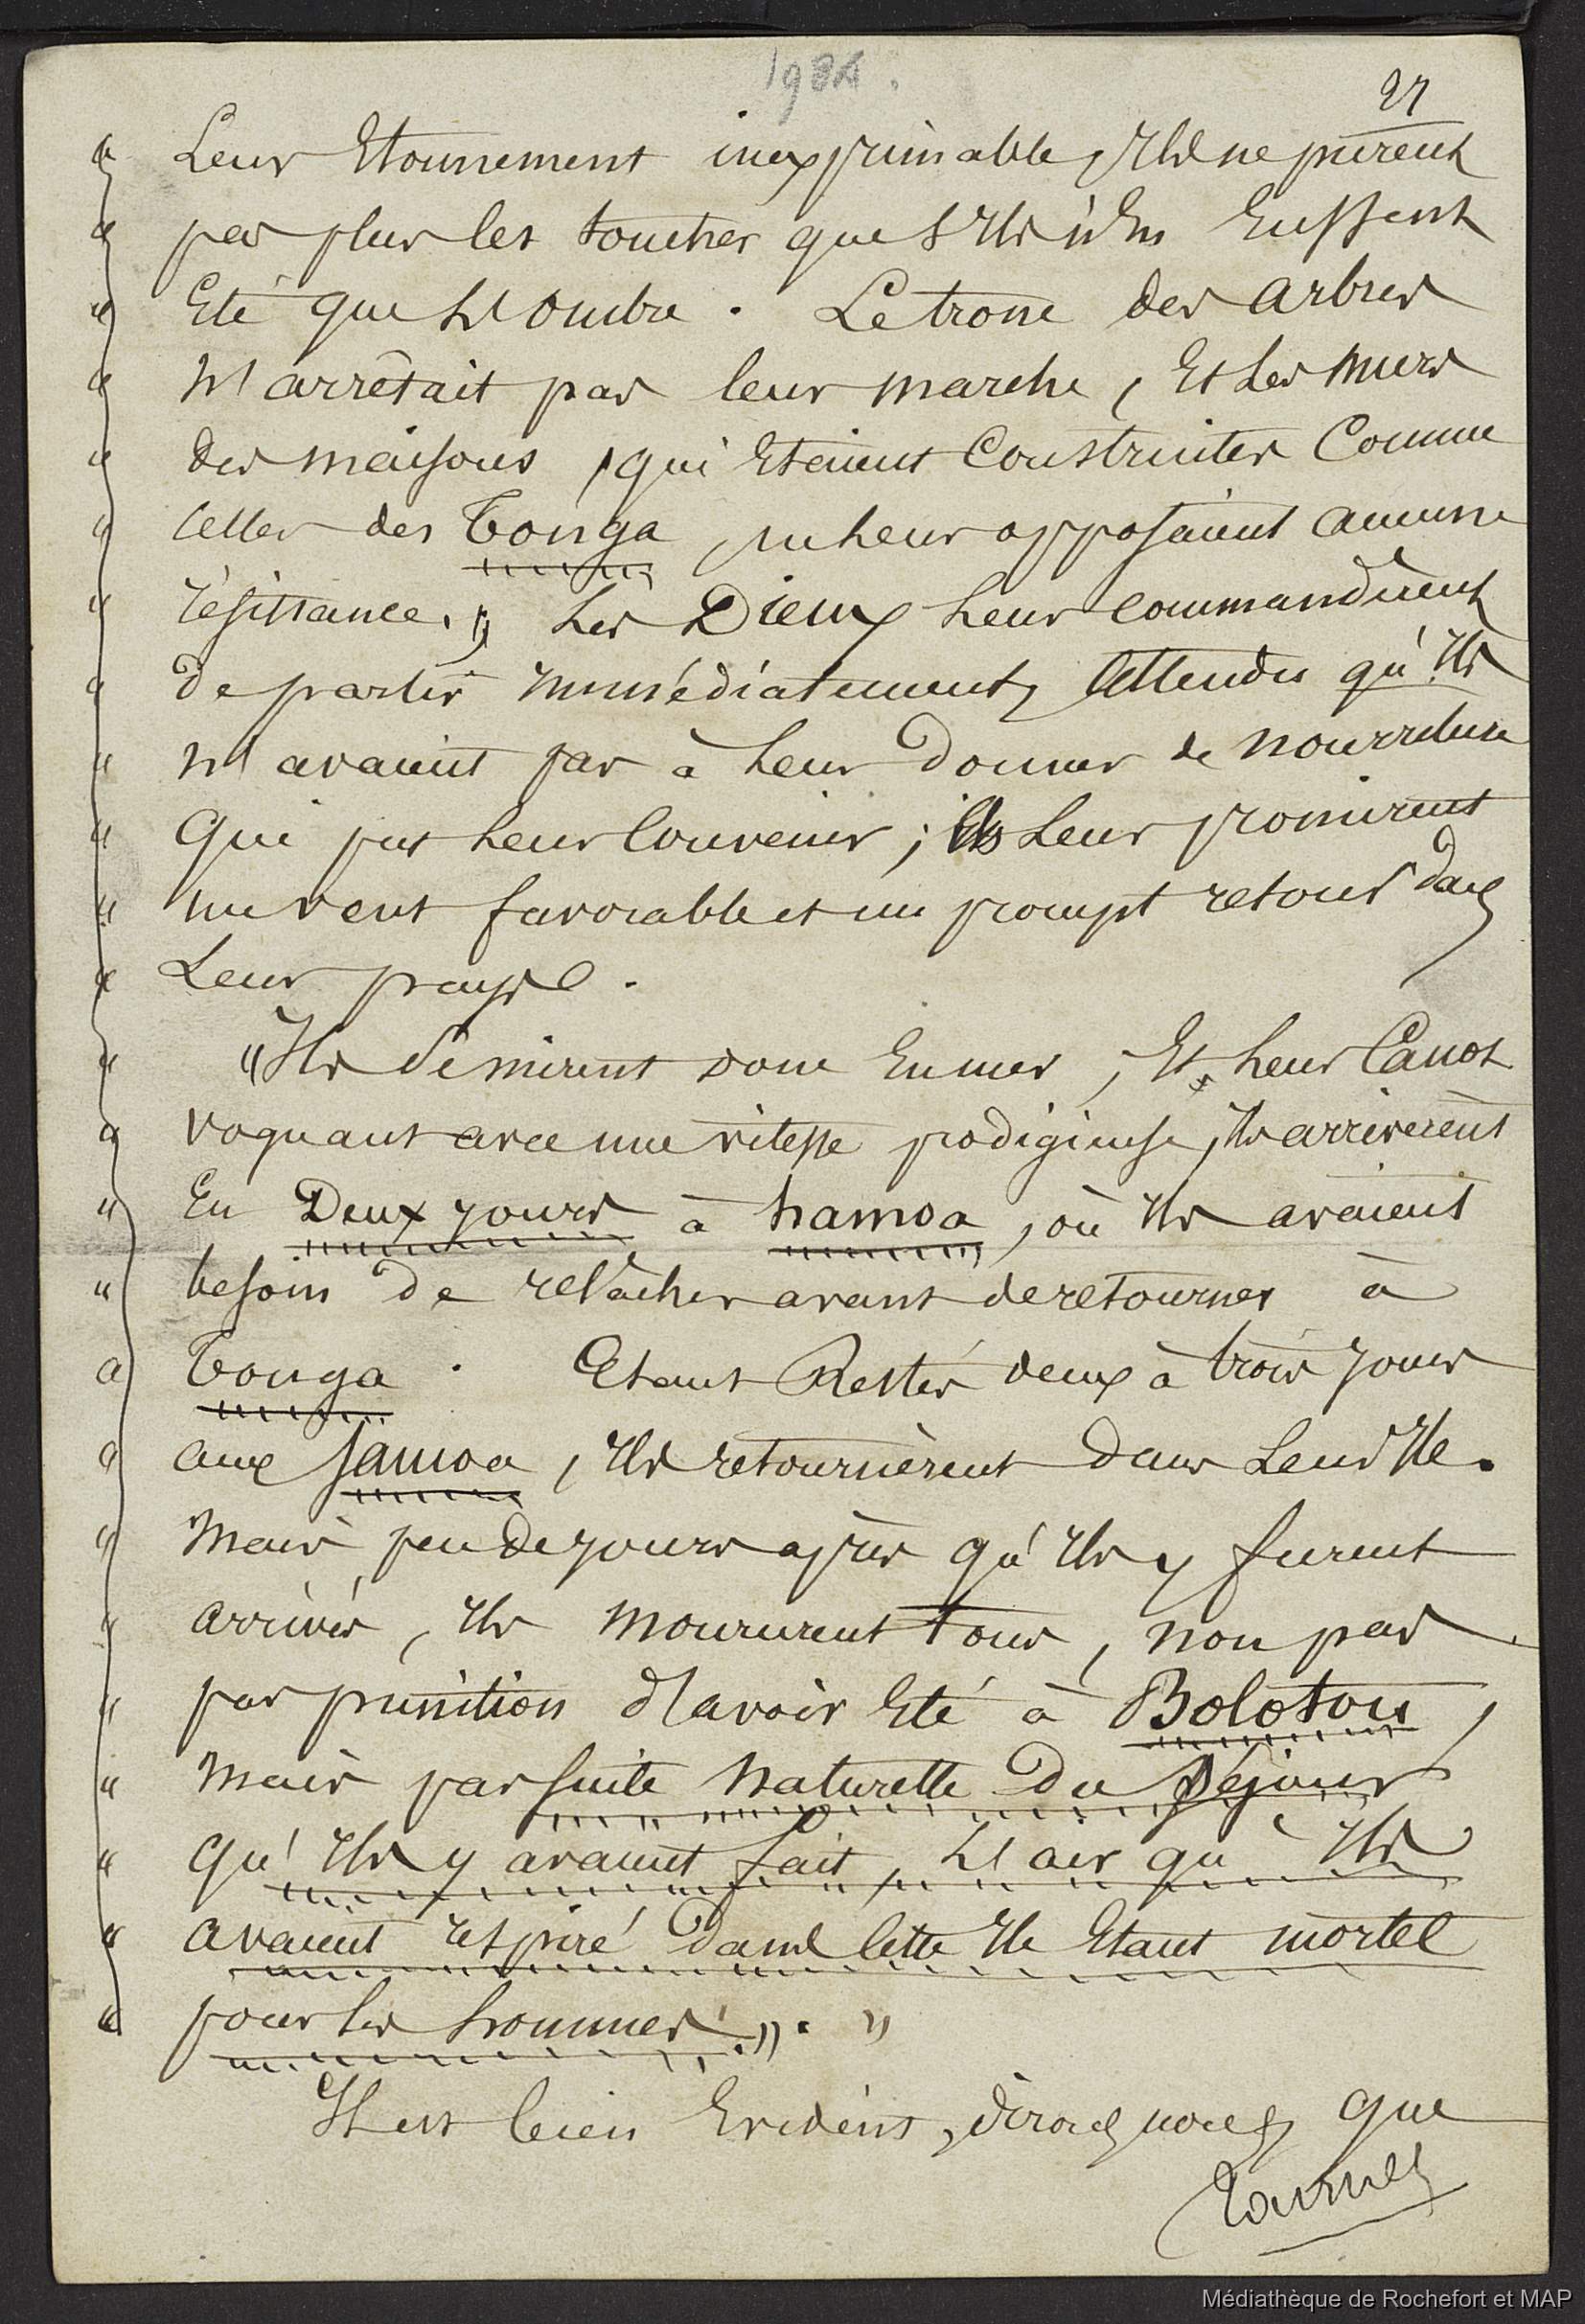 1984.
27
" Leur Etonnement inexprimable, Ils ne purent
" pas plus les toucher que s'Ils n'En Eussent
" Eté que l'Ombre. Le trone des arbres
" n'arrêtait pas leur marche, Et Les Murs
" des maisons, qui Etaient Construites Comme
" Celles des Tonga, ne Leur opposaient aucune
" résistance. " Les Dieux Leur commandèrent
" de partir immédiatement, Attendu qu'Ils
" n'avaient pas à Leur Donner de nourriture
" Qui put Leur Convenir ; Ils Leur promirent
" un vent favorable et un prompt retour dans
" Leur pays.
" "Ils se mirent donc En mer ; Et Leur Canot
" voguant avec une vitesse prodigieuse, Ils arrivèrent
" En Deux jours à hamoa, où Ils avaient
" besoin de relâcher avant de retourner à
" Tonga. Etant Restés deux à trois jours
" aux Samoa, Ils retournèrent Dans Leur Ile.
" Mais peu de jours après qu'Ils y furent
" arrivés, Ils moururent Tous, non pas
" par punition d'avoir Eté à Bolotou,
" Mais par suite naturelle Du Séjour
" qu'Ils y avaient fait, L'air qu'Ils
" avaient respiré dans Cette Ile Etant mortel
" pour les hommes.". "
Il est bien Evident, dirons nous, que